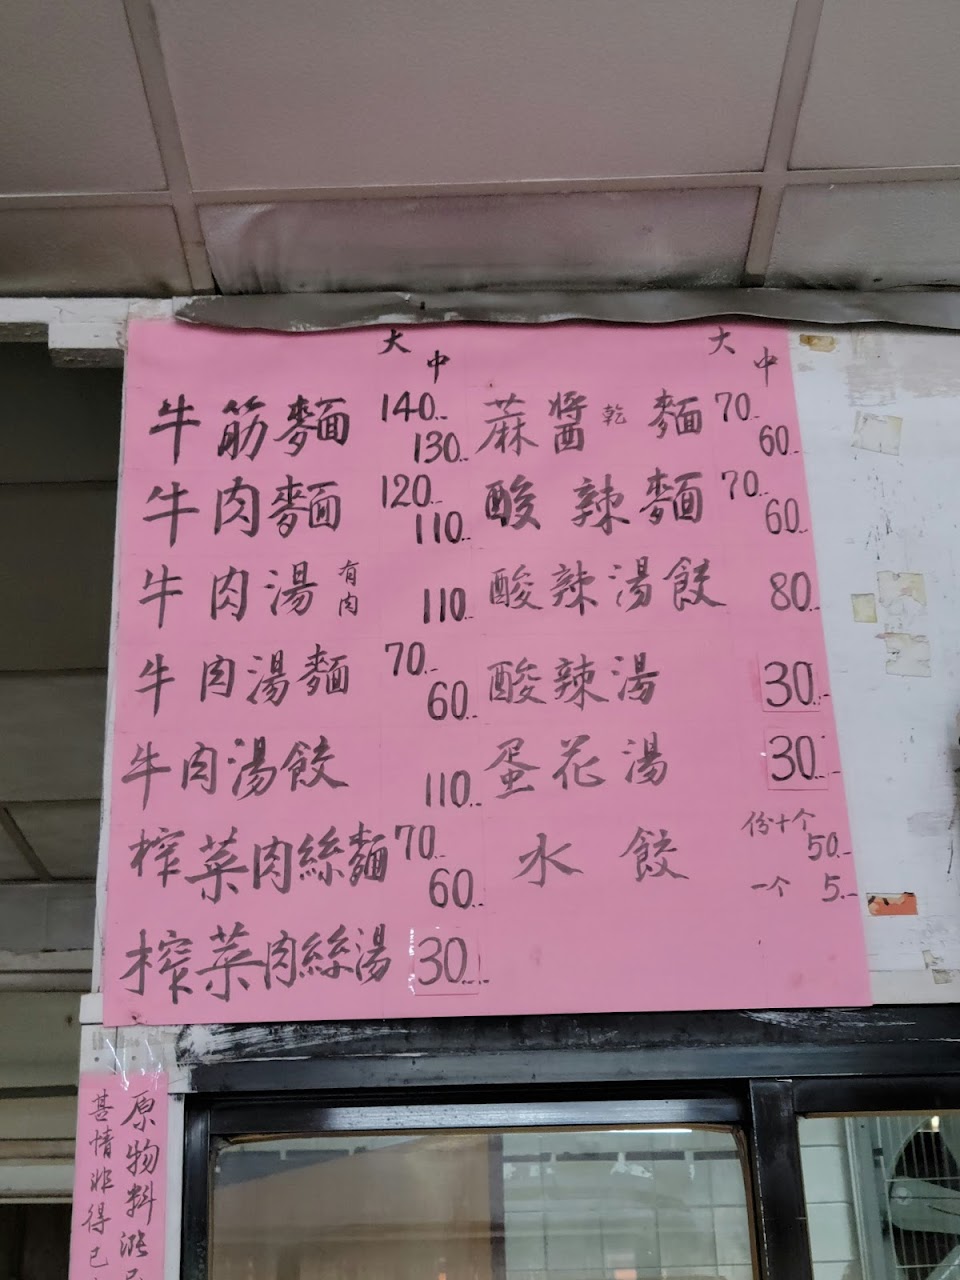 大 中
牛筋麵 140.- 130.-
牛肉麵 120.- 110.-
牛肉湯 有肉 110.-
牛肉湯麵 70.- 60.-
牛肉湯餃 110.-
榨菜肉絲麵 70.- 60.-
榨菜肉絲湯 30.-
大 中
蔴醬乾麵 70.- 60.-
酸辣麵 70.- 60.-
酸辣湯餃 80.-
酸辣湯 30.-
蛋花湯 30.-
水餃 份十个 50.-
一个 5.-
原物料漲
甚情非得已